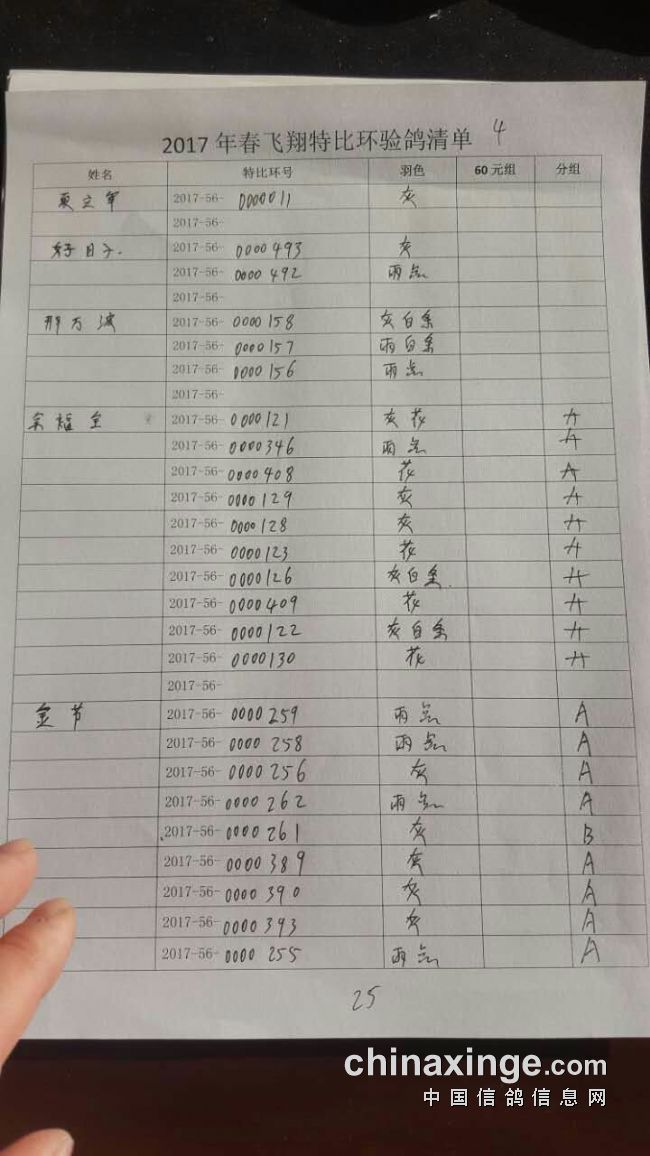 2017年春飞翔特比环验鸽清单 4
姓名 特比环号 羽色 60元组 分组
夏立军 2017-56- 0000011 灰
2017-56-
好日子. 2017-56- 0000493 灰
2017-56- 0000492 雨点
2017-56-
邢万波 2017-56- 0000158 灰白条
2017-56- 0000157 雨白条
2017-56- 0000156 雨点
2017-56-
福全 2017-56- 0000121 灰花 A
2017-56- 0000346 雨点 A
2017-56- 0000408 花 A
2017-56- 0000129 灰 A
2017-56- 0000128 灰 A
2017-56- 0000123 花 A
2017-56- 0000126 灰白条. A
2017-56- 0000409 花 A
2017-56- 0000122 灰白条 A
2017-56- 0000130 花 A
2017-56-
金节 2017-56- 0000259 雨点 A
2017-56- 0000258 雨点 A
2017-56- 0000256 灰 A
2017-56- 0000262 雨点 A
2017-56- 0000261 灰 B
2017-56- 0000389 灰 A
2017-56- 0000390 灰 A
2017-56- 0000393 灰 A
2017-56- 0000255 雨点 A
25
chinaxinge.com
中国信鸽信息网